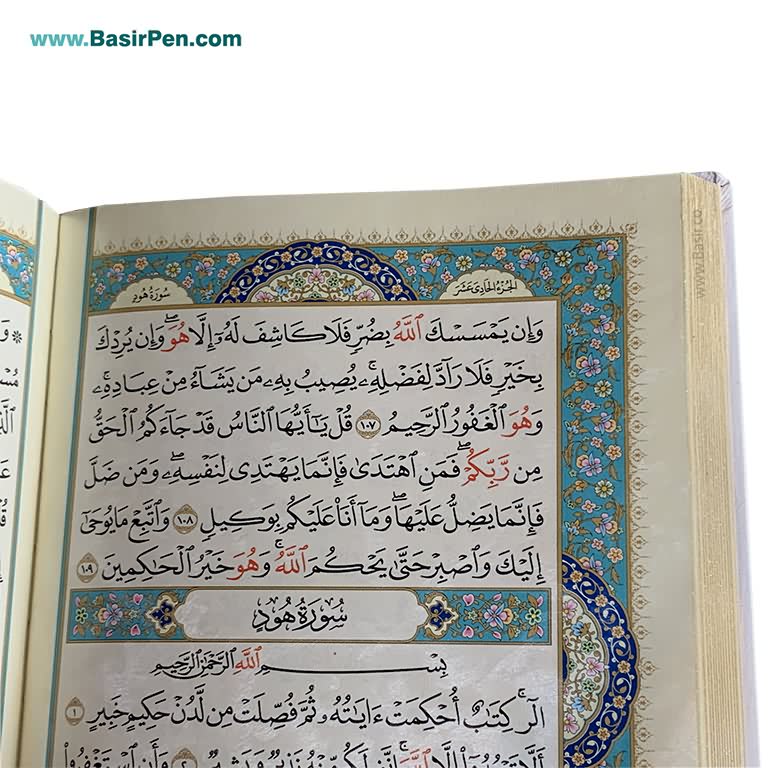 www.BasirPen.com
سُورَةُ هُودٍ
الجُزءُ الحَادِي عَشَر
وَإِن يَمْسَسْكَ ٱللَّهُ بِضُرٍّ فَلَا كَاشِفَ لَهُۥٓ إِلَّا هُوَۖ وَإِن يُرِدْكَ
بِخَيْرٍ فَلَا رَآدَّ لِفَضْلِهِۦۚ يُصِيبُ بِهِۦ مَن يَشَآءُ مِنْ عِبَادِهِۦۚ
وَهُوَ ٱلْغَفُورُ ٱلرَّحِيمُ ١٠٧ قُلْ يَٰٓأَيُّهَا ٱلنَّاسُ قَدْ جَآءَكُمُ ٱلْحَقُّ
مِن رَّبِّكُمْۖ فَمَنِ ٱهْتَدَىٰ فَإِنَّمَا يَهْتَدِى لِنَفْسِهِۦۖ وَمَن ضَلَّ
فَإِنَّمَا يَضِلُّ عَلَيْهَاۖ وَمَآ أَنَا۠ عَلَيْكُم بِوَكِيلٍ ١٠٨ وَٱتَّبِعْ مَا يُوحَىٰٓ
إِلَيْكَ وَٱصْبِرْ حَتَّىٰ يَحْكُمَ ٱللَّهُۚ وَهُوَ خَيْرُ ٱلْحَٰكِمِينَ ١٠٩
سُورَةُ هُودٍ
بِسْمِ ٱللَّهِ ٱلرَّحْمَٰنِ ٱلرَّحِيمِ
الٓرۚ كِتَٰبٌ أُحْكِمَتْ ءَايَٰتُهُۥ ثُمَّ فُصِّلَتْ مِن لَّدُنْ حَكِيمٍ خَبِيرٍ ١
أَلَّا تَعْبُدُوٓا۟ إِلَّا ٱللَّهَۚ إِنَّنِى لَكُم مِّنْهُ نَذِيرٌ وَبَشِيرٌ ٢ وَأَنِ ٱسْتَغْفِرُوا۟
www.Basir.co